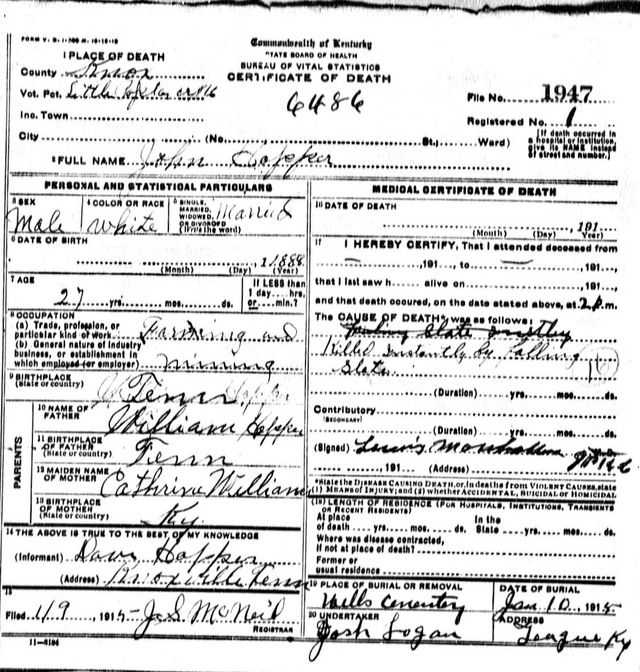 FORM V. S. 1-
Commonwealth of Kentucky
STATE BOARD OF HEALTH
BUREAU OF VITAL STATISTICS
CERTIFICATE OF DEATH
1 PLACE OF DEATH
County Knox
Vot. Pct. Little
Inc. Town
City (No. St.; Ward)
6486
File No. 1947
Registered No. 1
[If death occurred in a hospital or institution, give its NAME instead of street and number.]
2 FULL NAME John Hopper
PERSONAL AND STATISTICAL PARTICULARS
3 SEX Male
4 COLOR OR RACE White
5 SINGLE, MARRIED, WIDOWED OR DIVORCED (Write the word) Married
6 DATE OF BIRTH , 1888
(Month) (Day) (Year)
7 AGE 27 yrs. mos. ds.
If LESS than 1 day.... hrs. or.....min.?
8 OCCUPATION
(a) Trade, profession, or particular kind of work Farming and
(b) General nature of industry business, or establishment in which employed (or employer) mining
9 BIRTHPLACE
(State or country) Tenn Hopper
PARENTS
10 NAME OF FATHER William Hopper
11 BIRTHPLACE OF FATHER (State or country) Tenn
12 MAIDEN NAME OF MOTHER Cathrine William
13 BIRTHPLACE OF MOTHER (State or country) Ky
14 THE ABOVE IS TRUE TO THE BEST OF MY KNOWLEDGE
(Informant) Dave Hopper
(Address) Knoxville Tenn
15
Filed 1/9, 1915 J. S. McNeil
REGISTRAR
11-
MEDICAL CERTIFICATE OF DEATH
16 DATE OF DEATH
, 191
(Month) (Day) Year)
17 I HEREBY CERTIFY, That I attended deceased from
, 191...., to , 191....,
that I last saw h.... alive on , 191....,
and that death occured, on the date stated above, at 2 P.m.
The CAUSE OF DEATH* was as follows:
Slate
Killed instantly by falling
Slate
(Duration) yrs. mos. ds.
Contributory
(SECONDARY)
(Duration) yrs. mos. ds.
(Signed) Lewis
, 191 (Address)
*State the DISEASE CAUSING DEATH, or, in deaths from VIOLENT CAUSES, state (1) MEANS OF INJURY; and (2) whether ACCIDENTAL, SUICIDAL or HOMICIDAL
18 LENGTH OF RESIDENCE (FOR HOSPITALS, INSTITUTIONS, TRANSIENTS OR RECENT RESIDENTS)
At place of death .... yrs. mos. ds. In the State .... yrs. mos. ds.
Where was disease contracted, If not at place of death?
Former or usual residence
19 PLACE OF BURIAL OR REMOVAL
Wells
DATE OF BURIAL
Jan 10, 1915
20 UNDERTAKER
Josh Logan
ADDRESS
Ky